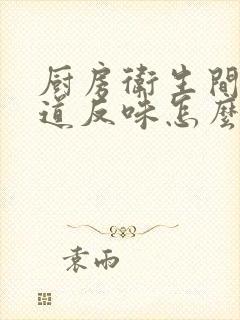 厨房衛生間
道反味怎麼
袁雨